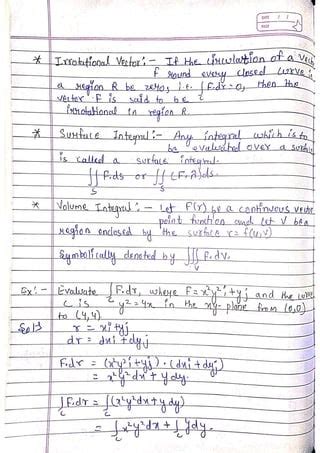 * Irrotational Vector :- If the circulation of a vect
F round every closed curve in
a region R be zero, i.e. ∫F.dr = 0, then the
c
vector F is said to be
irrotational in region R.
* Surface Integral :- Any integral which is to
be evaluated over a surface
is called a surface integral.
∬ F.ds or ∬ (F.n̂)ds.
S S
* Volume Integral :- Let F(r) be a continuous vector
point function and let V be a
region enclosed by the surface r = f(u,v)
Symbolically denoted by ∭ F.dv.
V
Ex:- Evaluate ∫F.dr, where F = x²y²i + yj and the curve
c
C is y² = 4x in the xy-plane from (0,0)
to (4,4)
Sol:- r = xi + yj
dr = dxi + dyj
F.dr = (x²y²i + yj) . (dxi + dyj)
= x²y²dx + y dy.
∫F.dr = ∫(x²y²dx + y dy)
c c
= ∫x²y²dx + ∫ydy.
c c